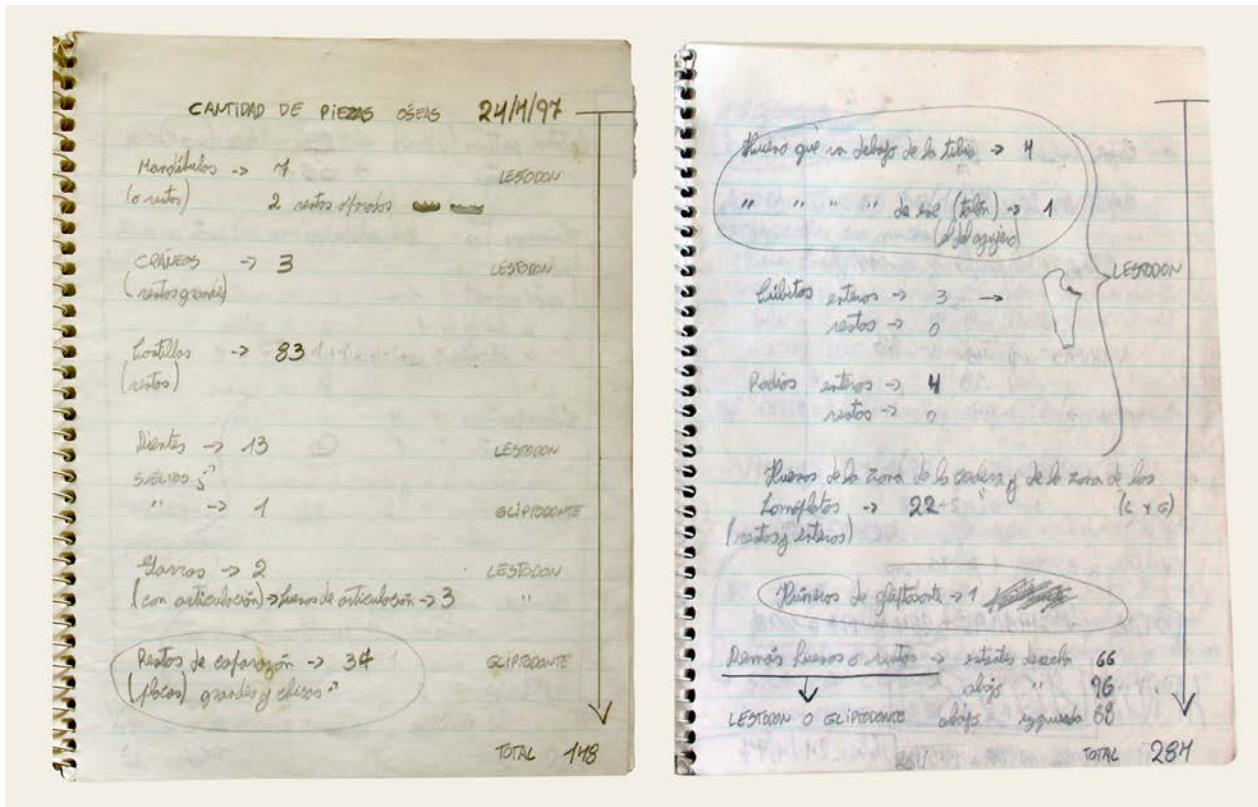 CANTIDAD DE PIEZAS OSEAS 24/1/97
Mandíbulas -> 7 LESTODON
(o restos) 2 restos
CRÁNEOS -> 3 LESTODON
(restos grande)
Costillas -> 83
(restos)
Dientes -> 13 LESTODON
SUELTOS
" -> 1 GLIPTODONTE
Garras -> 2 LESTODON
(con articulación) -> huesos de articulación -> 3 "
Restos de caparazón -> 34 GLIPTODONTE
(placas) grandes y chicos
TOTAL 148
Hueso que va debajo de la tibia -> 4
" " " " de ese (talón) -> 1
(el del agujero)
LESTODON
Cúbitos enteros -> 3 ->
restos -> 0
Radios enteros -> 4
restos -> 0
Huesos de la zona de la cadera y de la zona de los
Homóplatos -> 22 (L Y G)
(restos y enteros)
Húmeros de gliptodonte -> 1
Demás huesos o restos -> estantes 66
abajo " 96
LESTODON O GLIPTODONTE abajo izquierda 88
TOTAL 284